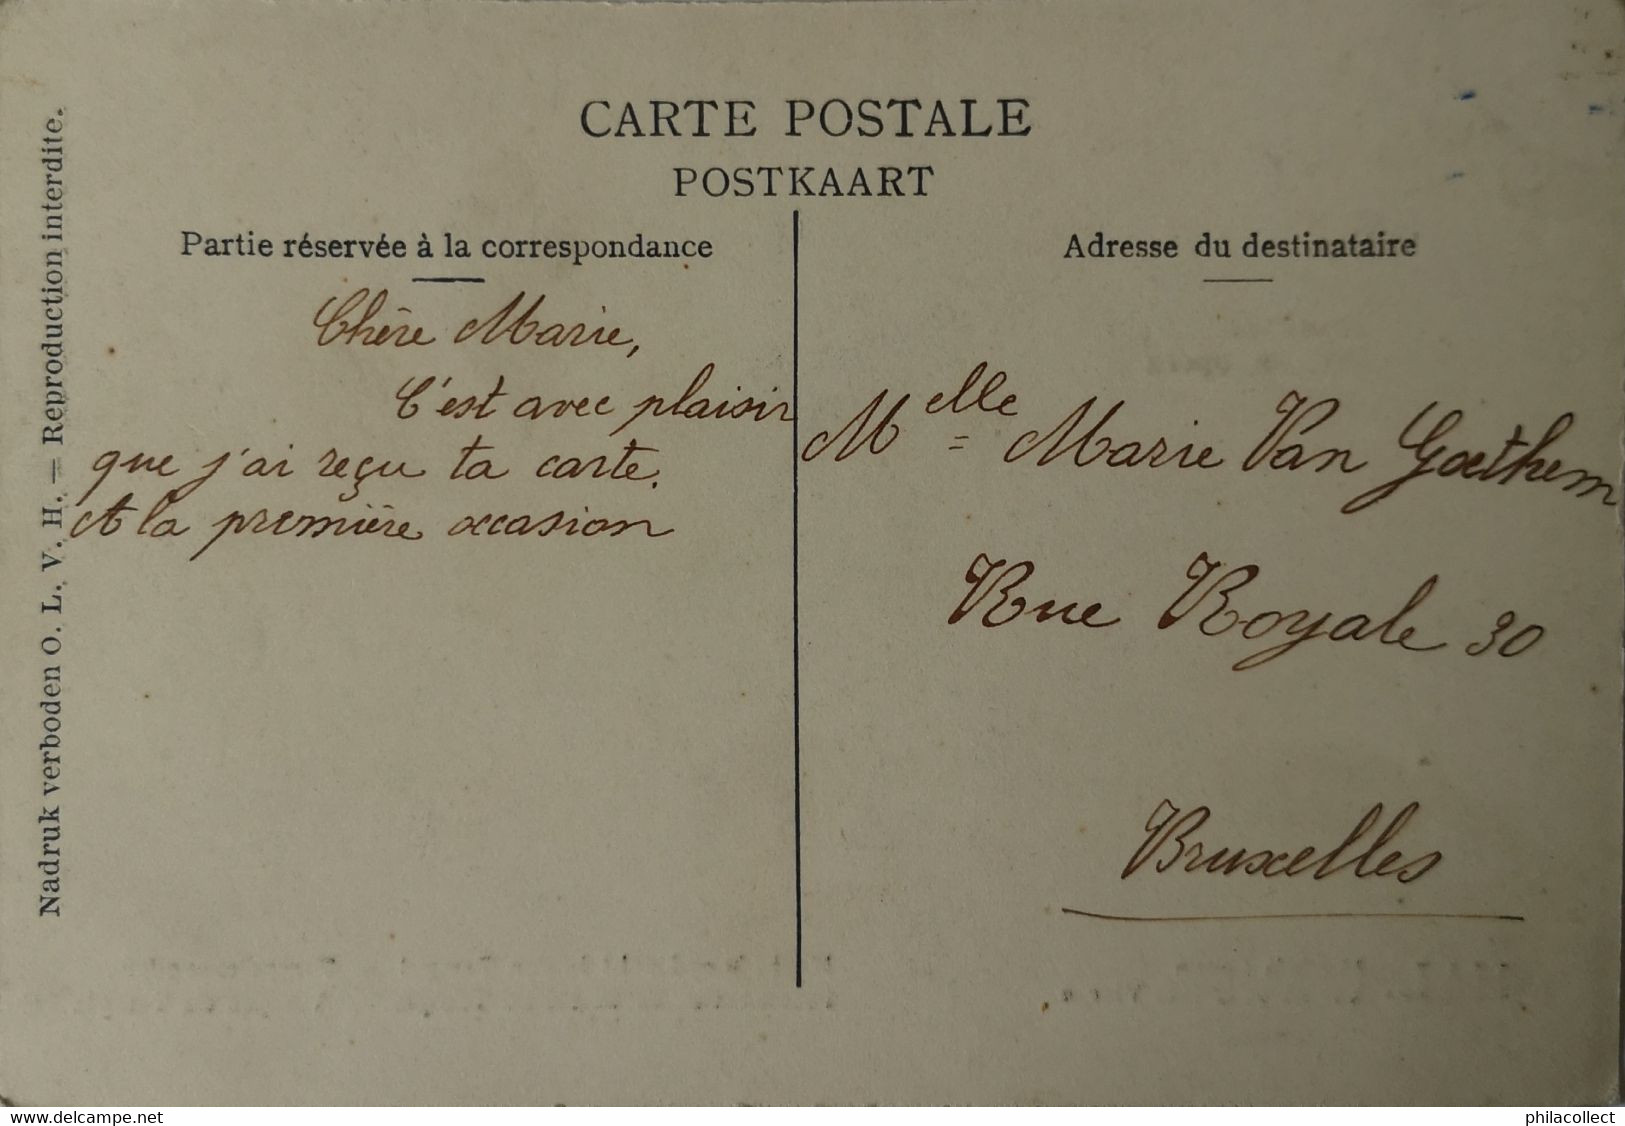 CARTE POSTALE
POSTKAART
Partie réservée à la correspondance
Adresse du destinataire
Nadruk verboden O. L. V. H. — Reproduction interdite.
Chère Marie,
C'est avec plaisir
que j'ai reçu ta carte.
A la première occasion
Melle Marie Van Goethem
Rue Royale 30
Bruxelles
www.delcampe.net
philacollect